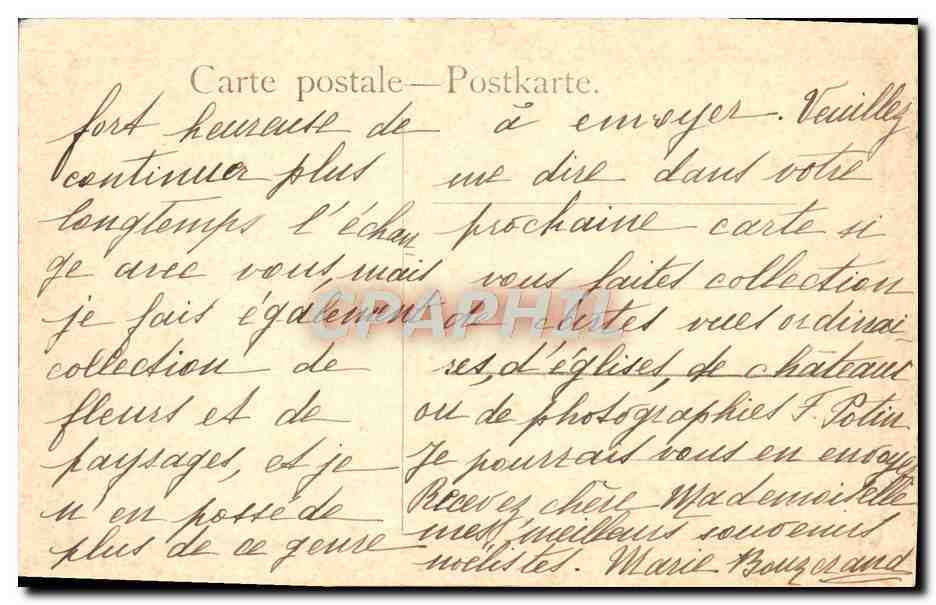 Carte postale—Postkarte.
fort heureuse de
continuer plus
longtemps l'échan
ge avec vous, mais
je fais également
collection de
fleurs et de
paysages, et je
n'en possède
plus de ce genre
à envoyer. Veuillez
me dire dans votre
prochaine carte si
vous faites collection
de cartes vues ordinai-
res, d'églises, de châteaux
ou de photographies F. Potin
Je pourrais vous en envoyer
Recevez chère Mademoiselle
mes meilleurs souvenirs
noëlistes. Marie Bouzerand
CPAPHIL